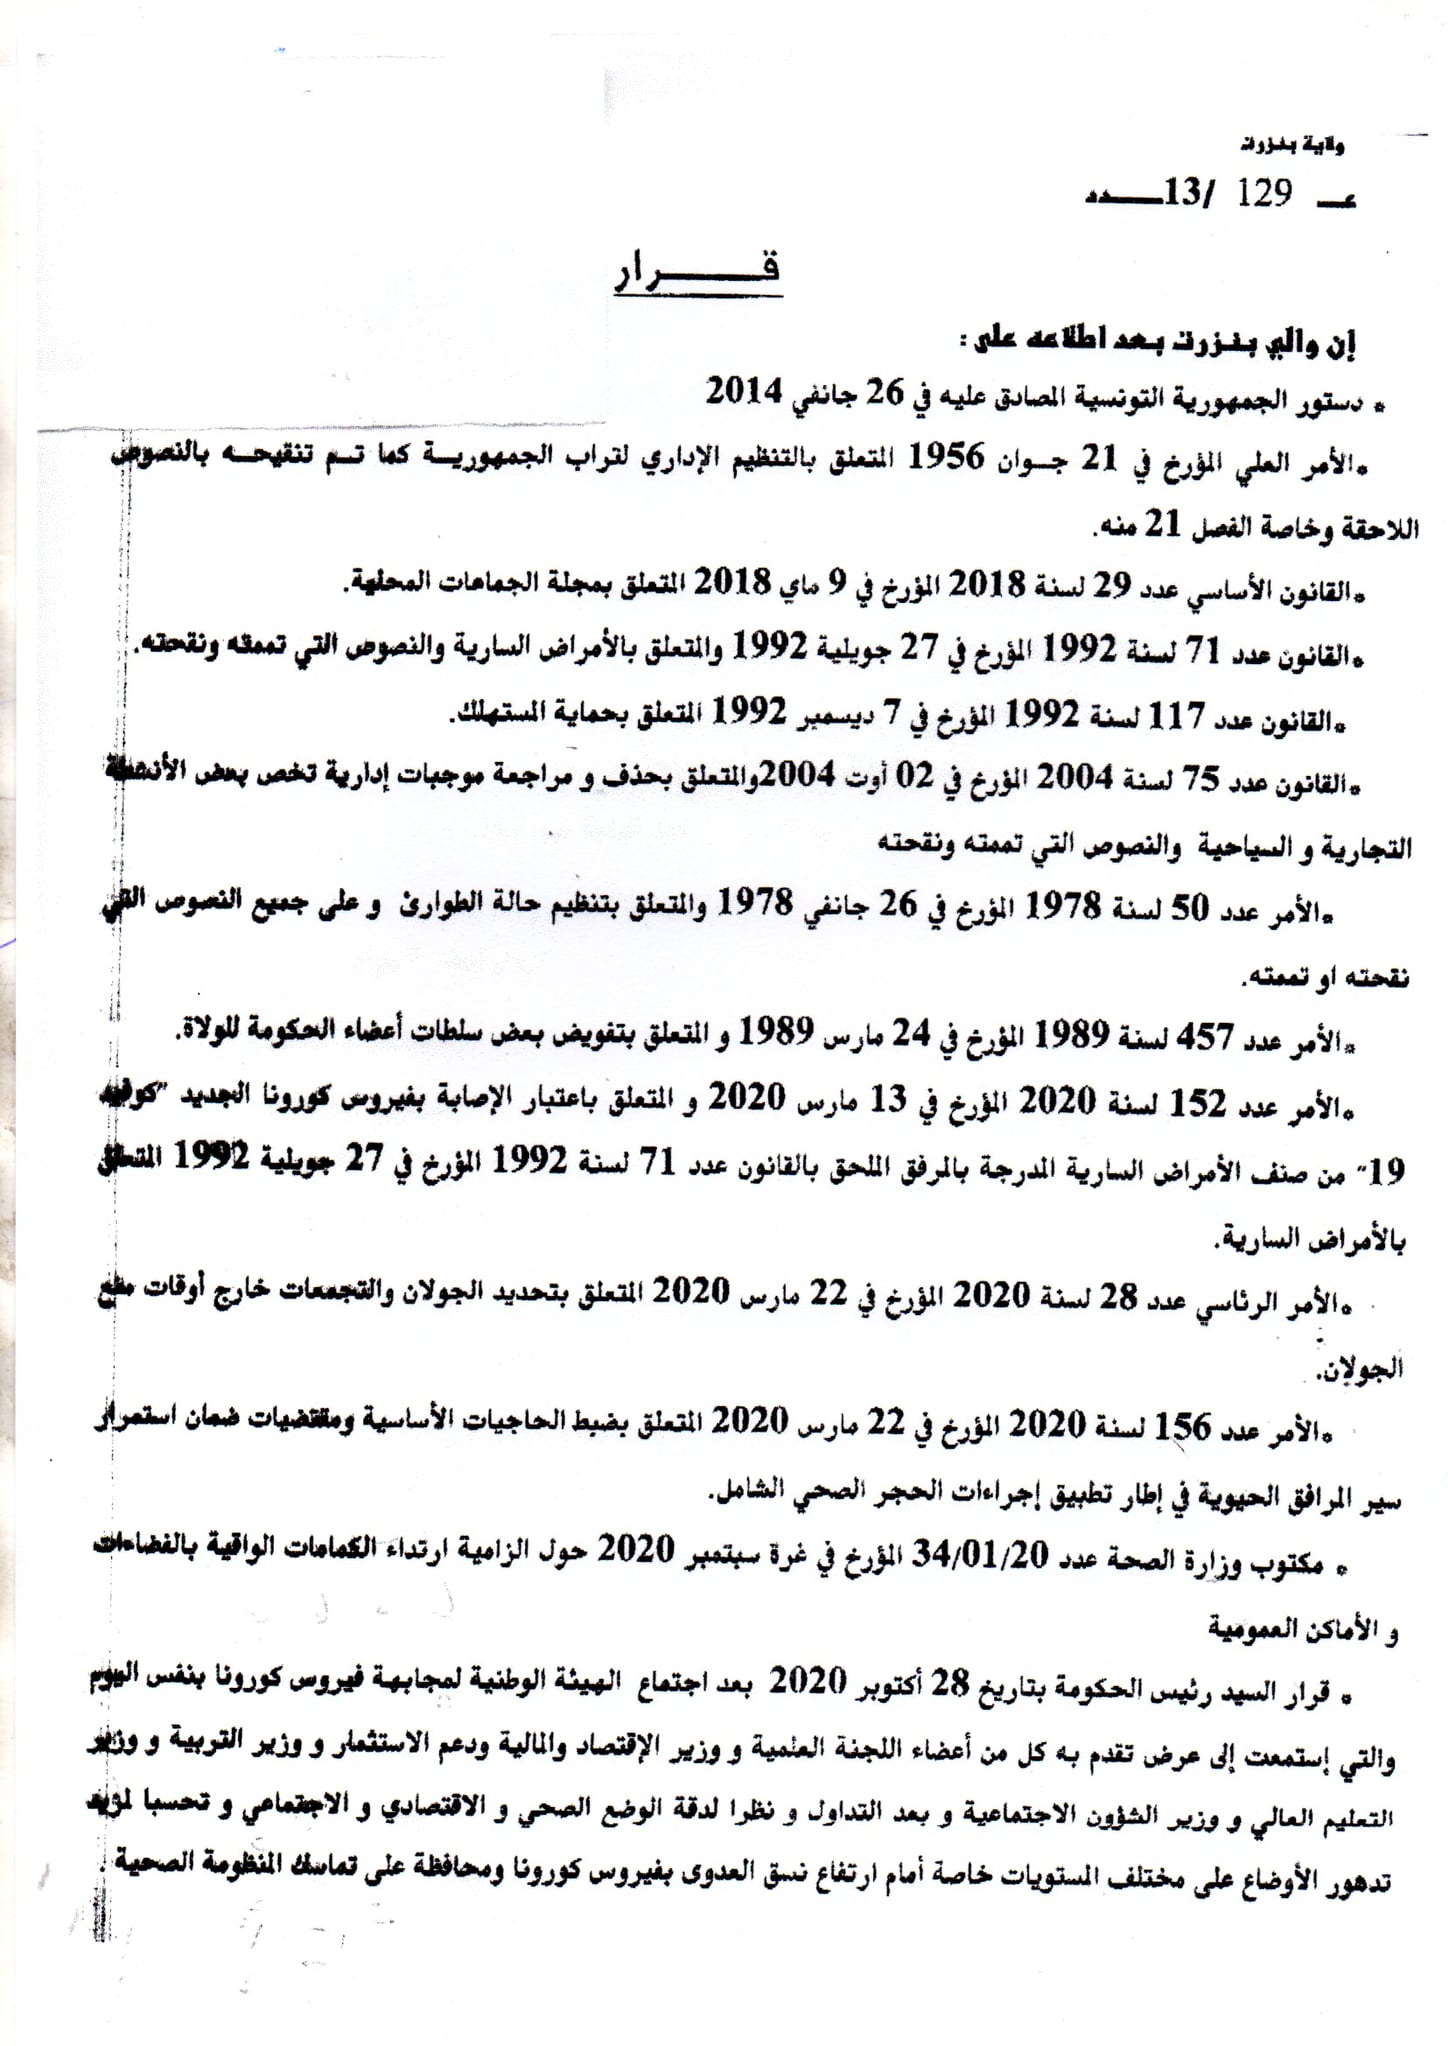 ولاية بنزرت
عـ 129 /13ـــدد
قـــرار
إن والي بنزرت بعد اطلاعه على :
* دستور الجمهورية التونسية المصادق عليه في 26 جانفي 2014
*الأمر العلي المؤرخ في 21 جوان 1956 المتعلق بالتنظيم الإداري لتراب الجمهورية كما تم تنقيحه بالنصوص
اللاحقة وخاصة الفصل 21 منه.
*القانون الأساسي عدد 29 لسنة 2018 المؤرخ في 9 ماي 2018 المتعلق بمجلة الجماعات المحلية.
*القانون عدد 71 لسنة 1992 المؤرخ في 27 جويلية 1992 والمتعلق بالأمراض السارية والنصوص التي تممته ونقحته.
*القانون عدد 117 لسنة 1992 المؤرخ في 7 ديسمبر 1992 المتعلق بحماية المستهلك.
*القانون عدد 75 لسنة 2004 المؤرخ في 02 أوت 2004والمتعلق بحذف و مراجعة موجبات إدارية تخص بعض الأنشطة
التجارية و السياحية والنصوص التي تممته ونقحته
*الأمر عدد 50 لسنة 1978 المؤرخ في 26 جانفي 1978 والمتعلق بتنظيم حالة الطوارئ و على جميع النصوص التي
نقحته او تممته.
*الأمر عدد 457 لسنة 1989 المؤرخ في 24 مارس 1989 و المتعلق بتفويض بعض سلطات أعضاء الحكومة للولاة.
*الأمر عدد 152 لسنة 2020 المؤرخ في 13 مارس 2020 و المتعلق باعتبار الإصابة بفيروس كورونا الجديد "كوفيد
19" من صنف الأمراض السارية المدرجة بالمرفق الملحق بالقانون عدد 71 لسنة 1992 المؤرخ في 27 جويلية 1992 المتعلق
بالأمراض السارية.
*الأمر الرئاسي عدد 28 لسنة 2020 المؤرخ في 22 مارس 2020 المتعلق بتحديد الجولان والتجمعات خارج أوقات منع
الجولان.
*الأمر عدد 156 لسنة 2020 المؤرخ في 22 مارس 2020 المتعلق بضبط الحاجيات الأساسية ومقتضيات ضمان استمرار
سير المرافق الحيوية في إطار تطبيق إجراءات الحجر الصحي الشامل.
* مكتوب وزارة الصحة عدد 34/01/20 المؤرخ في غرة سبتمبر 2020 حول الزامية ارتداء الكمامات الواقية بالفضاءات
و الأماكن العمومية
* قرار السيد رئيس الحكومة بتاريخ 28 أكتوبر 2020 بعد اجتماع الهيئة الوطنية لمجابهة فيروس كورونا بنفس اليوم
والتي إستمعت إلى عرض تقدم به كل من أعضاء اللجنة العلمية و وزير الإقتصاد والمالية ودعم الاستثمار و وزير التربية و وزير
التعليم العالي و وزير الشؤون الاجتماعية و بعد التداول و نظرا لدقة الوضع الصحي و الاقتصادي و الاجتماعي و تحسبا لمزيد
تدهور الأوضاع على مختلف المستويات خاصة أمام ارتفاع نسق العدوى بفيروس كورونا ومحافظة على تماسك المنظومة الصحية .